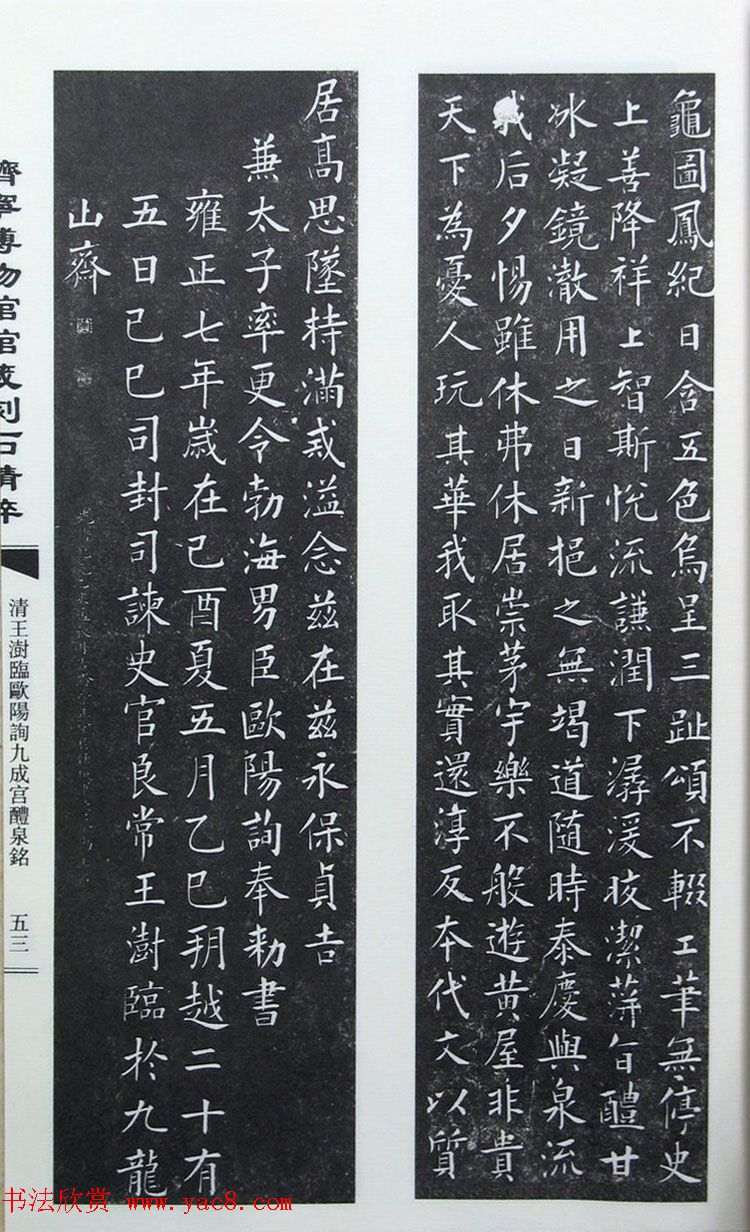 龜圖鳳紀日含五色烏呈三趾頌不輟工筆無停史
上善降祥上智斯悅流謙潤下潺湲晈潔蓱旨醴甘
冰凝鏡澈用之日新挹之無竭道隨時泰慶與泉流
我后夕惕雖休弗休居崇茅宇樂不般遊黃屋非貴
天下為憂人玩其華我取其實還淳反本代文以質
居髙思墜持滿戒溢念茲在茲永保貞吉
兼太子率更令勃海男臣歐陽詢奉勑書
雍正七年歲在己酉夏五月乙巳朔越二十有
五日己巳司封司諫史官良常王澍臨於九龍
山齋
濟寧博物館館藏刻石精粹
清王澍臨歐陽詢九成宮醴泉銘
五三
书法欣赏 www.yac8.com